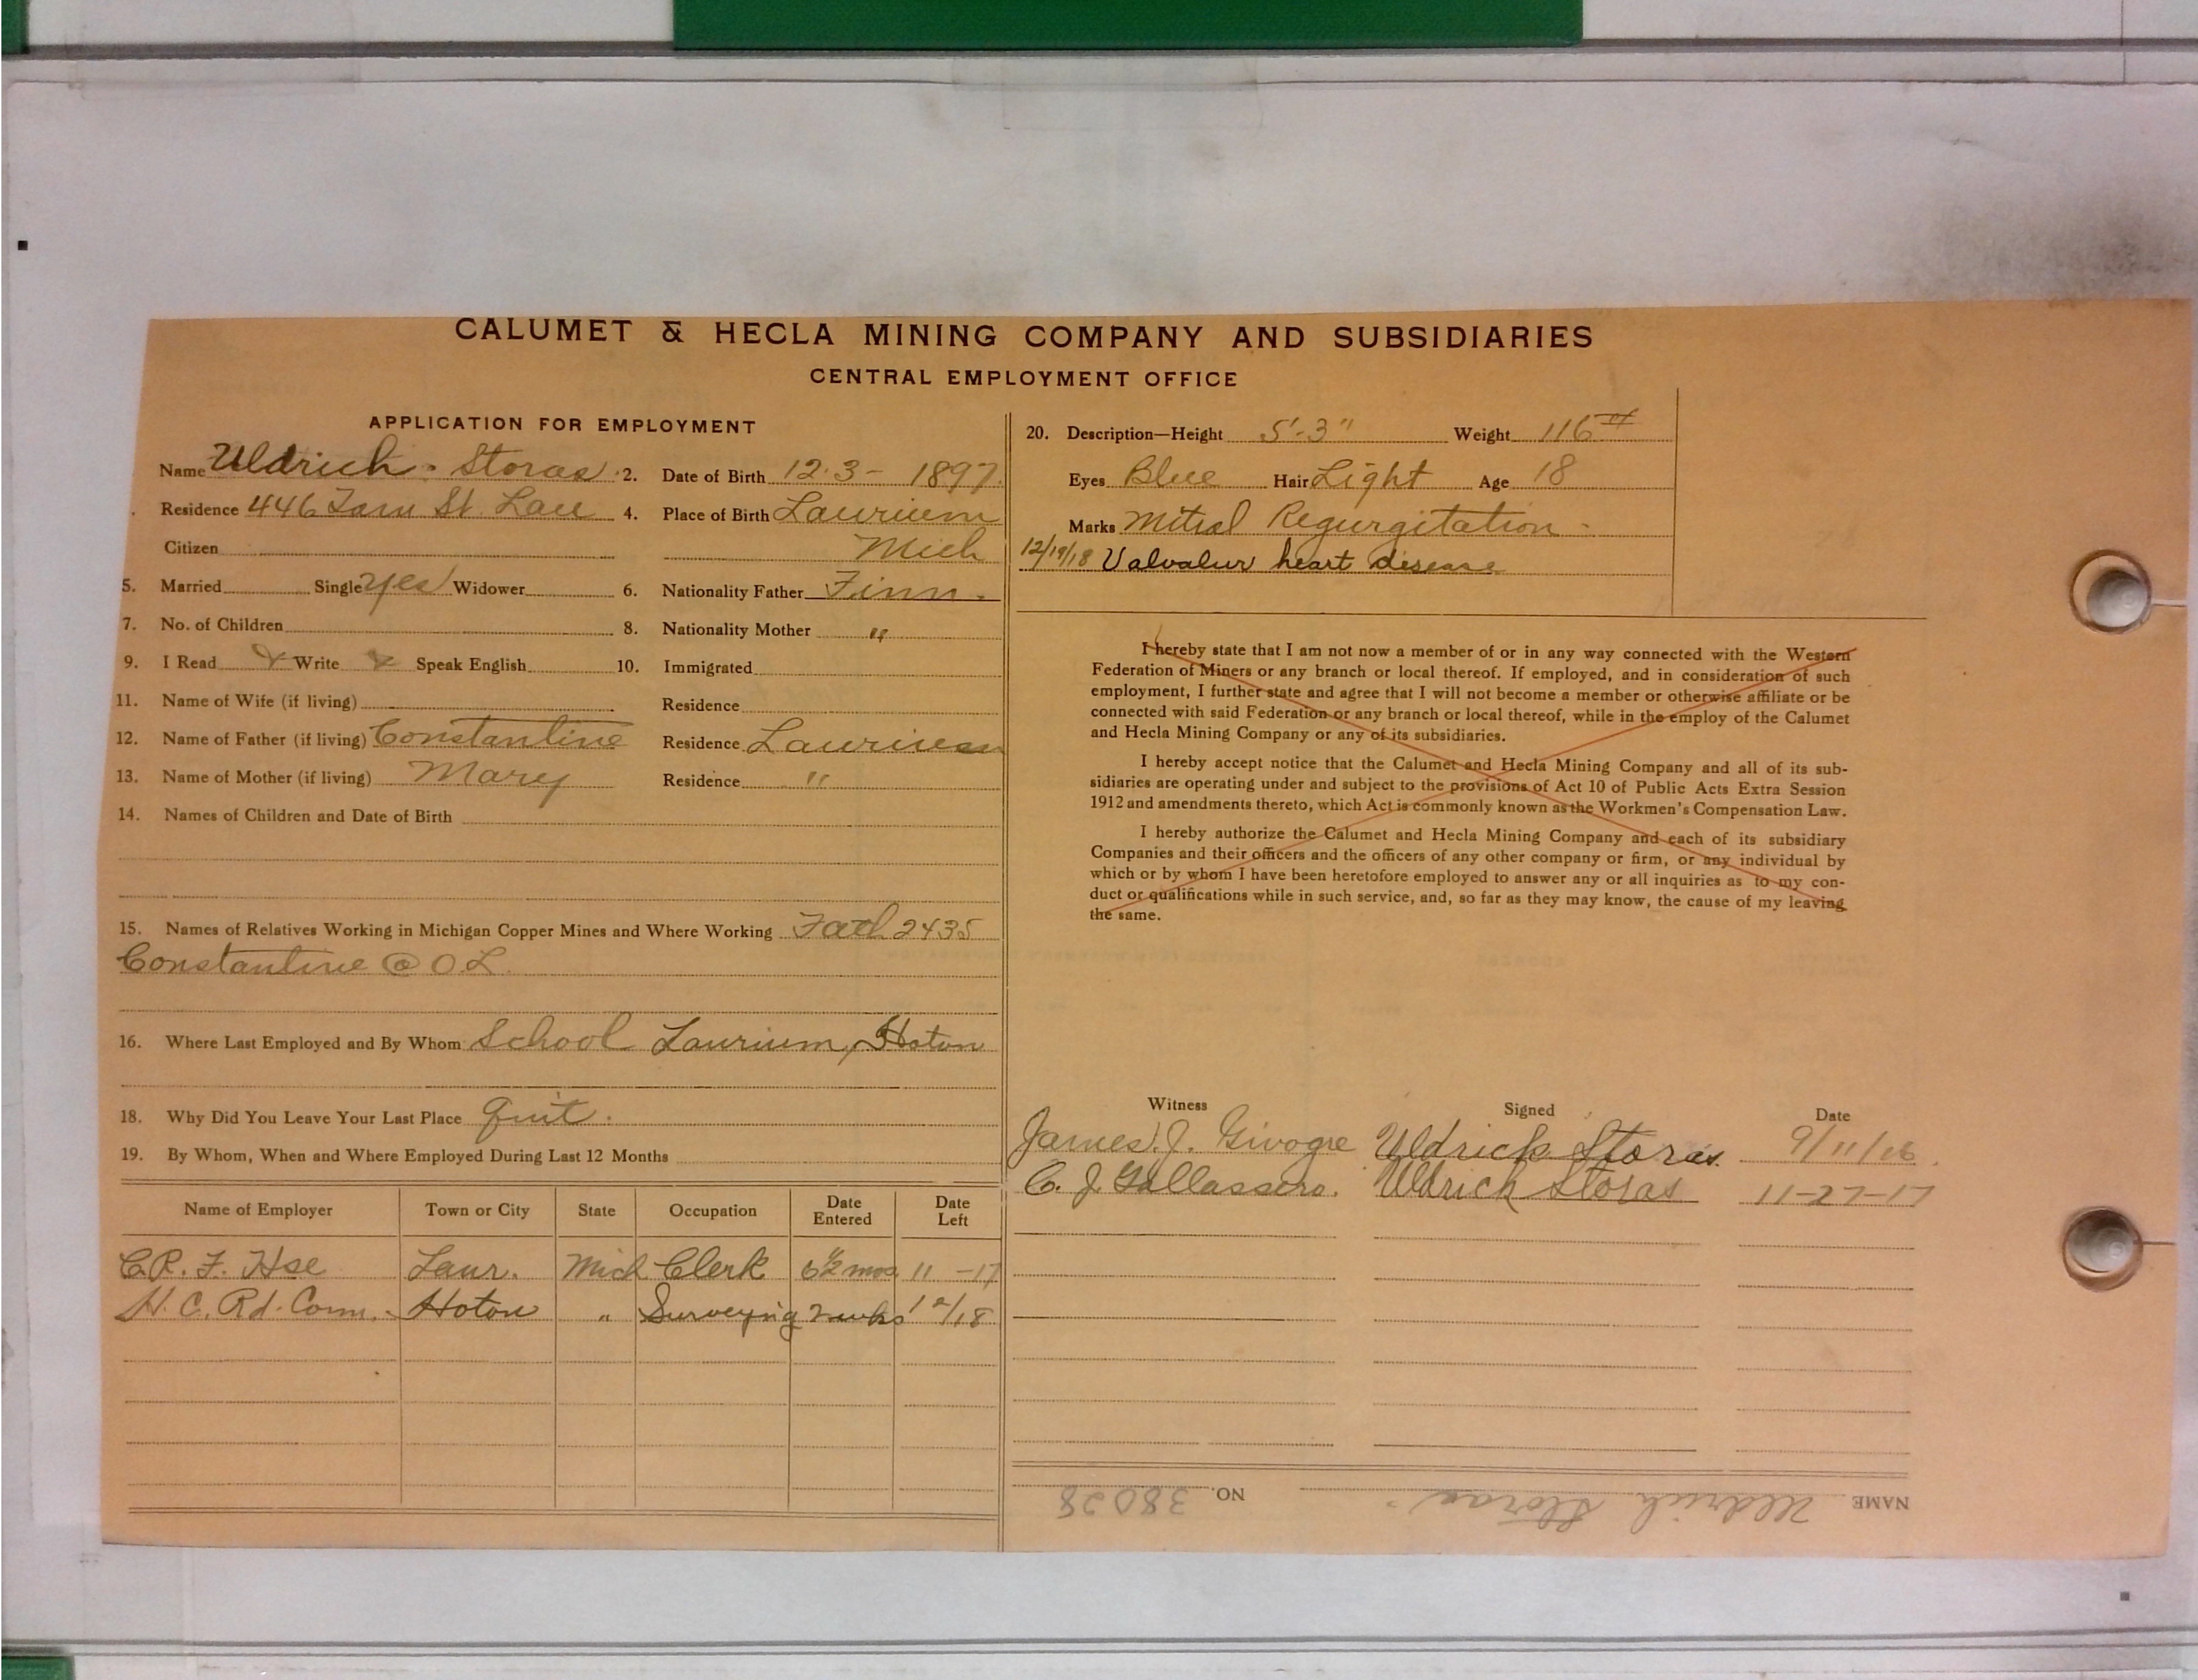 CALUMET & HECLA MINING COMPANY AND SUBSIDIARIES
CENTRAL EMPLOYMENT OFFICE
APPLICATION FOR EMPLOYMENT
Name Uldrich Storas 2. Date of Birth 12-3-1897
Residence 446 St. 4. Place of Birth Laurium
Citizen Mich
5. Married Single yes Widower 6. Nationality Father Finn.
7. No. of Children 8. Nationality Mother "
9. I Read Write Speak English 10. Immigrated
11. Name of Wife (if living) Residence
12. Name of Father (if living) Constantine Residence Laurium
13. Name of Mother (if living) Mary Residence "
14. Names of Children and Date of Birth
15. Names of Relatives Working in Michigan Copper Mines and Where Working Fath 2435
Constantine @ O L
16. Where Last Employed and By Whom School Laurium, Hoton
18. Why Did You Leave Your Last Place quit.
19. By Whom, When and Where Employed During Last 12 Months
Name of Employer Town or City State Occupation Date Entered Date Left
C.R. F. Hse Laur. Mich Clerk 6½ mos 11-17
H. C. Rd. Com. Hoton " Surveying 2 wks
20. Description—Height 5'-3" Weight 116
Eyes Blue Hair Light Age 18
Marks Mitral Regurgitation
12/19/18 Valvalur heart disease
I hereby state that I am not now a member of or in any way connected with the Western
Federation of Miners or any branch or local thereof. If employed, and in consideration of such
employment, I further state and agree that I will not become a member or otherwise affiliate or be
connected with said Federation or any branch or local thereof, while in the employ of the Calumet
and Hecla Mining Company or any of its subsidiaries.
I hereby accept notice that the Calumet and Hecla Mining Company and all of its sub-
sidiaries are operating under and subject to the provisions of Act 10 of Public Acts Extra Session
1912 and amendments thereto, which Act is commonly known as the Workmen's Compensation Law.
I hereby authorize the Calumet and Hecla Mining Company and each of its subsidiary
Companies and their officers and the officers of any other company or firm, or any individual by
which or by whom I have been heretofore employed to answer any or all inquiries as to my con-
duct or qualifications while in such service, and, so far as they may know, the cause of my leaving
the same.
Witness Signed Date
James J. Givogre Uldrick Storas 9/11/16
C. J. Uldrich Storas 11-27-17
NAME Uldrich Storas NO. 38028